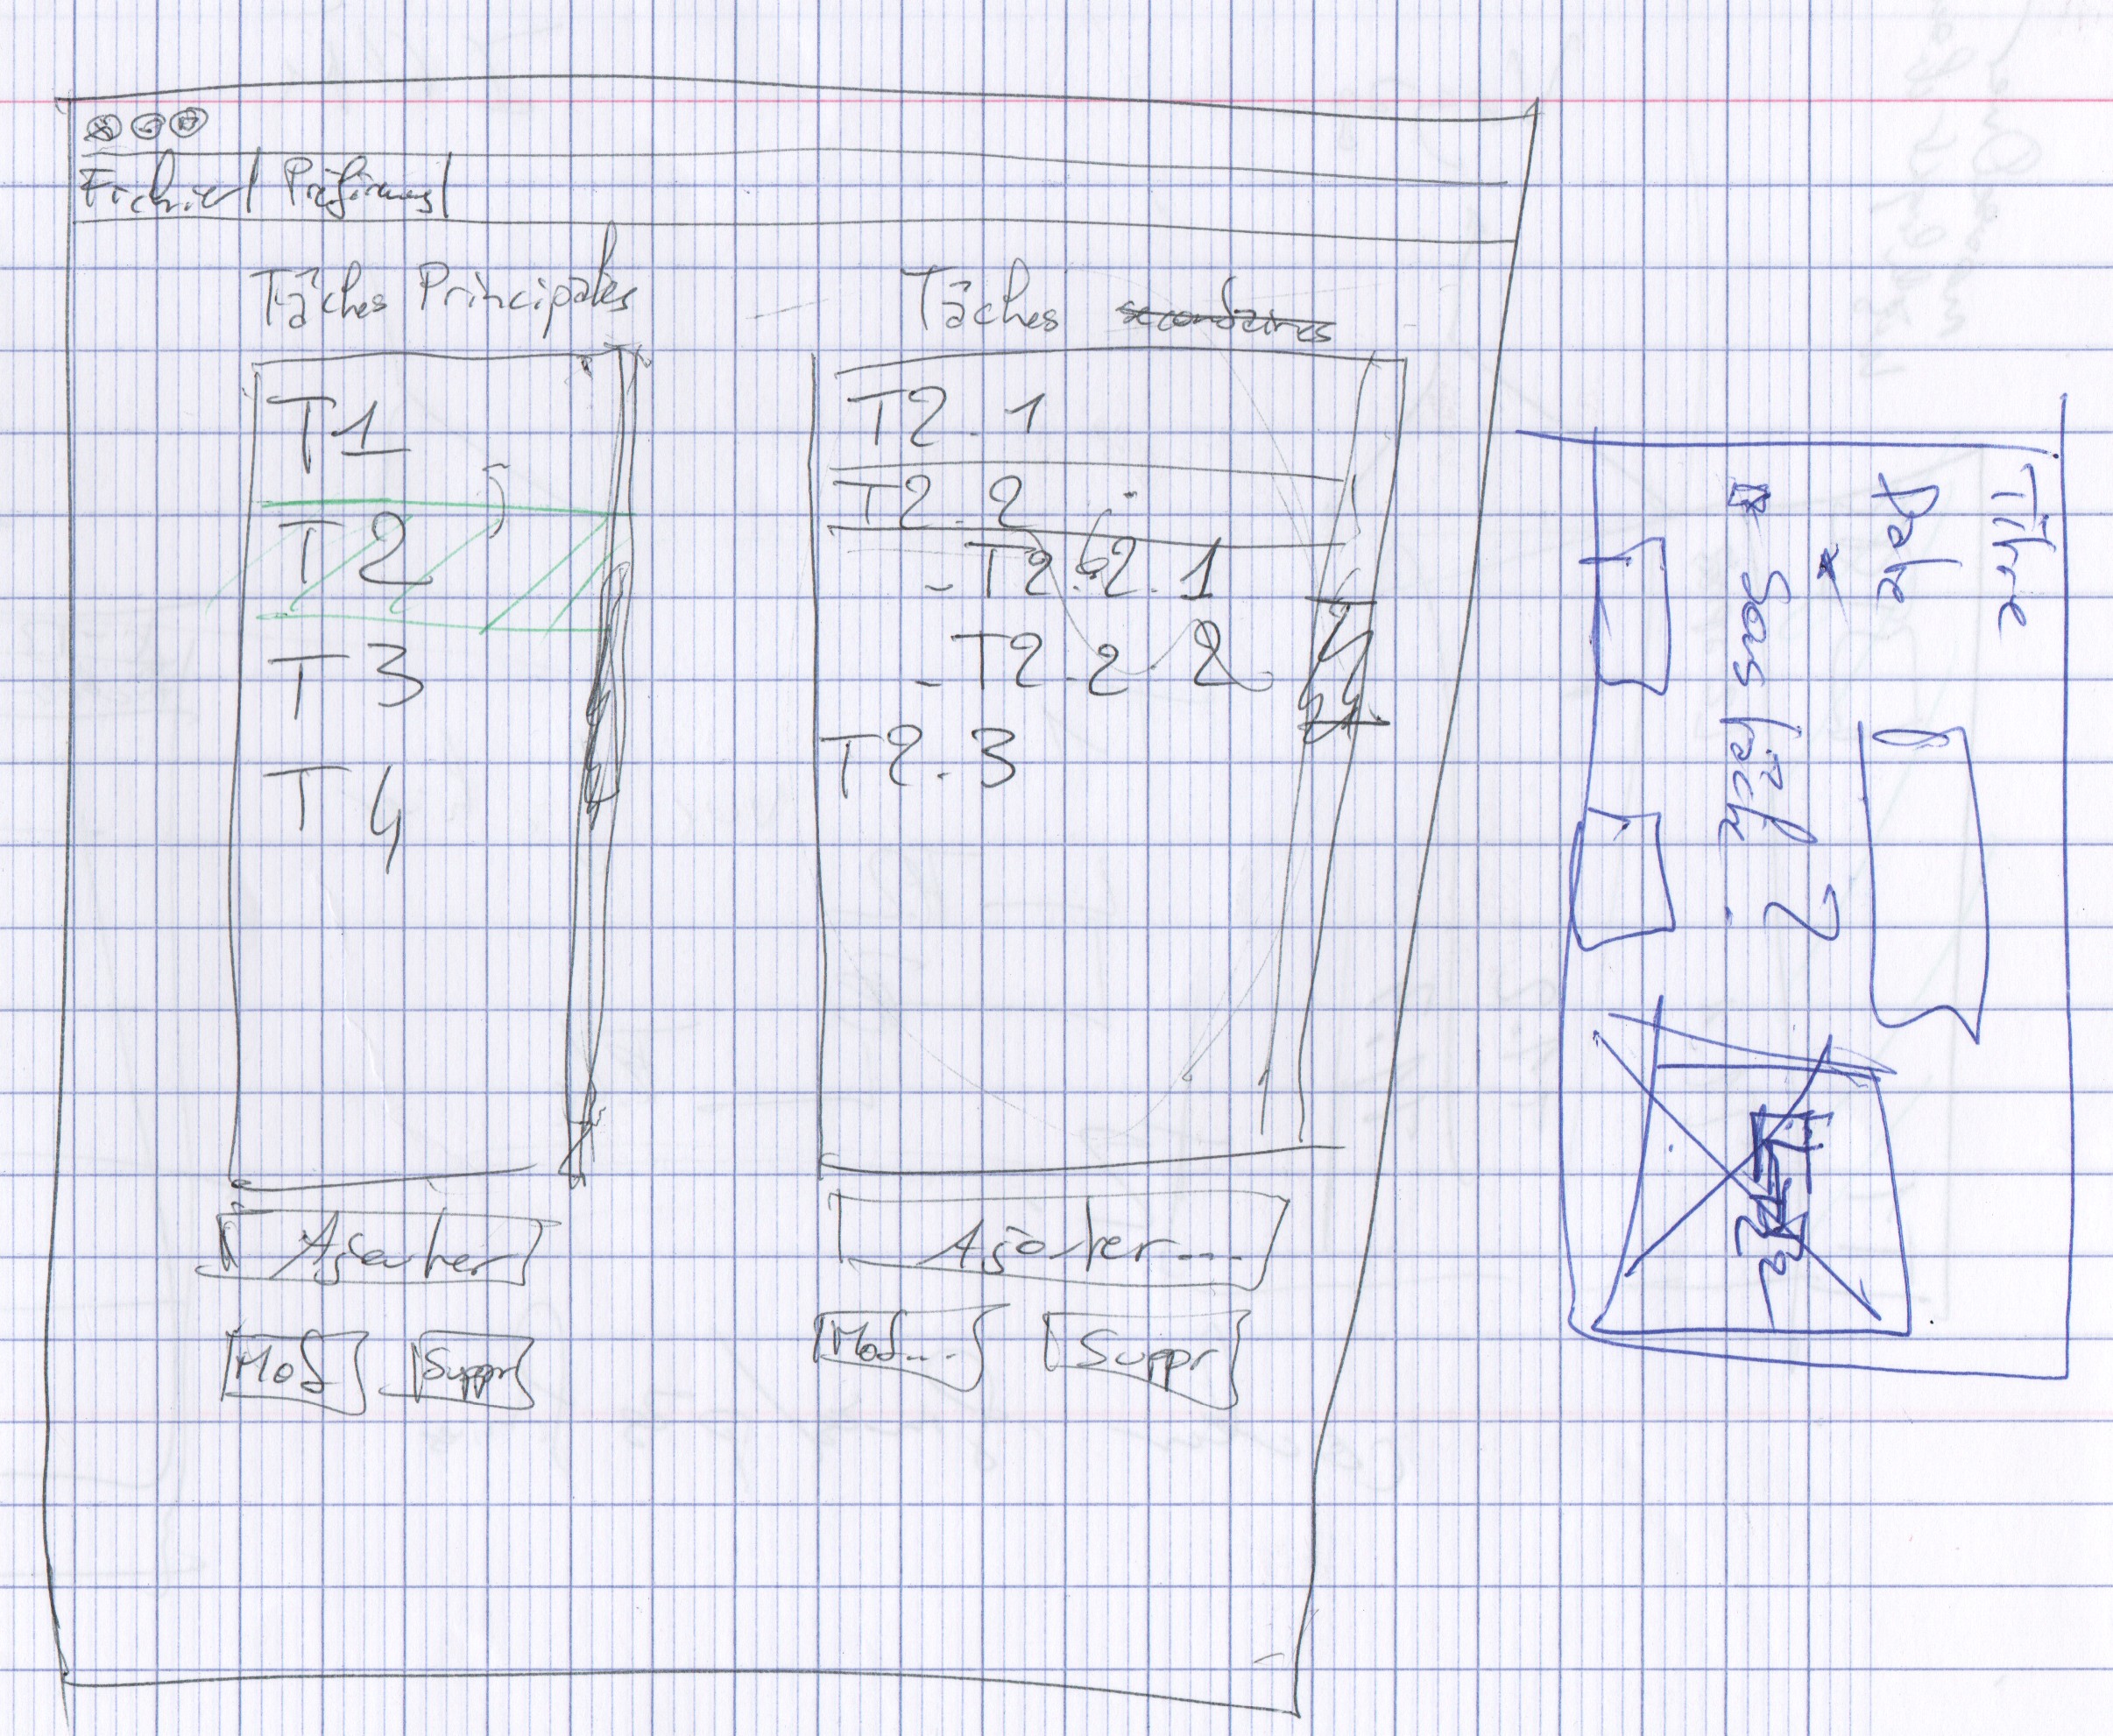 Fichier
Tâches Principales
T1
T2
T3
T4
Ajouter
Mod
Suppr
Tâches secondaires
T2.1
T2.2
- T2.2.1
- T2.2.2
T2.3
Ajouter...
Mod...
Suppr
Titre
Date
Sous tâche ?